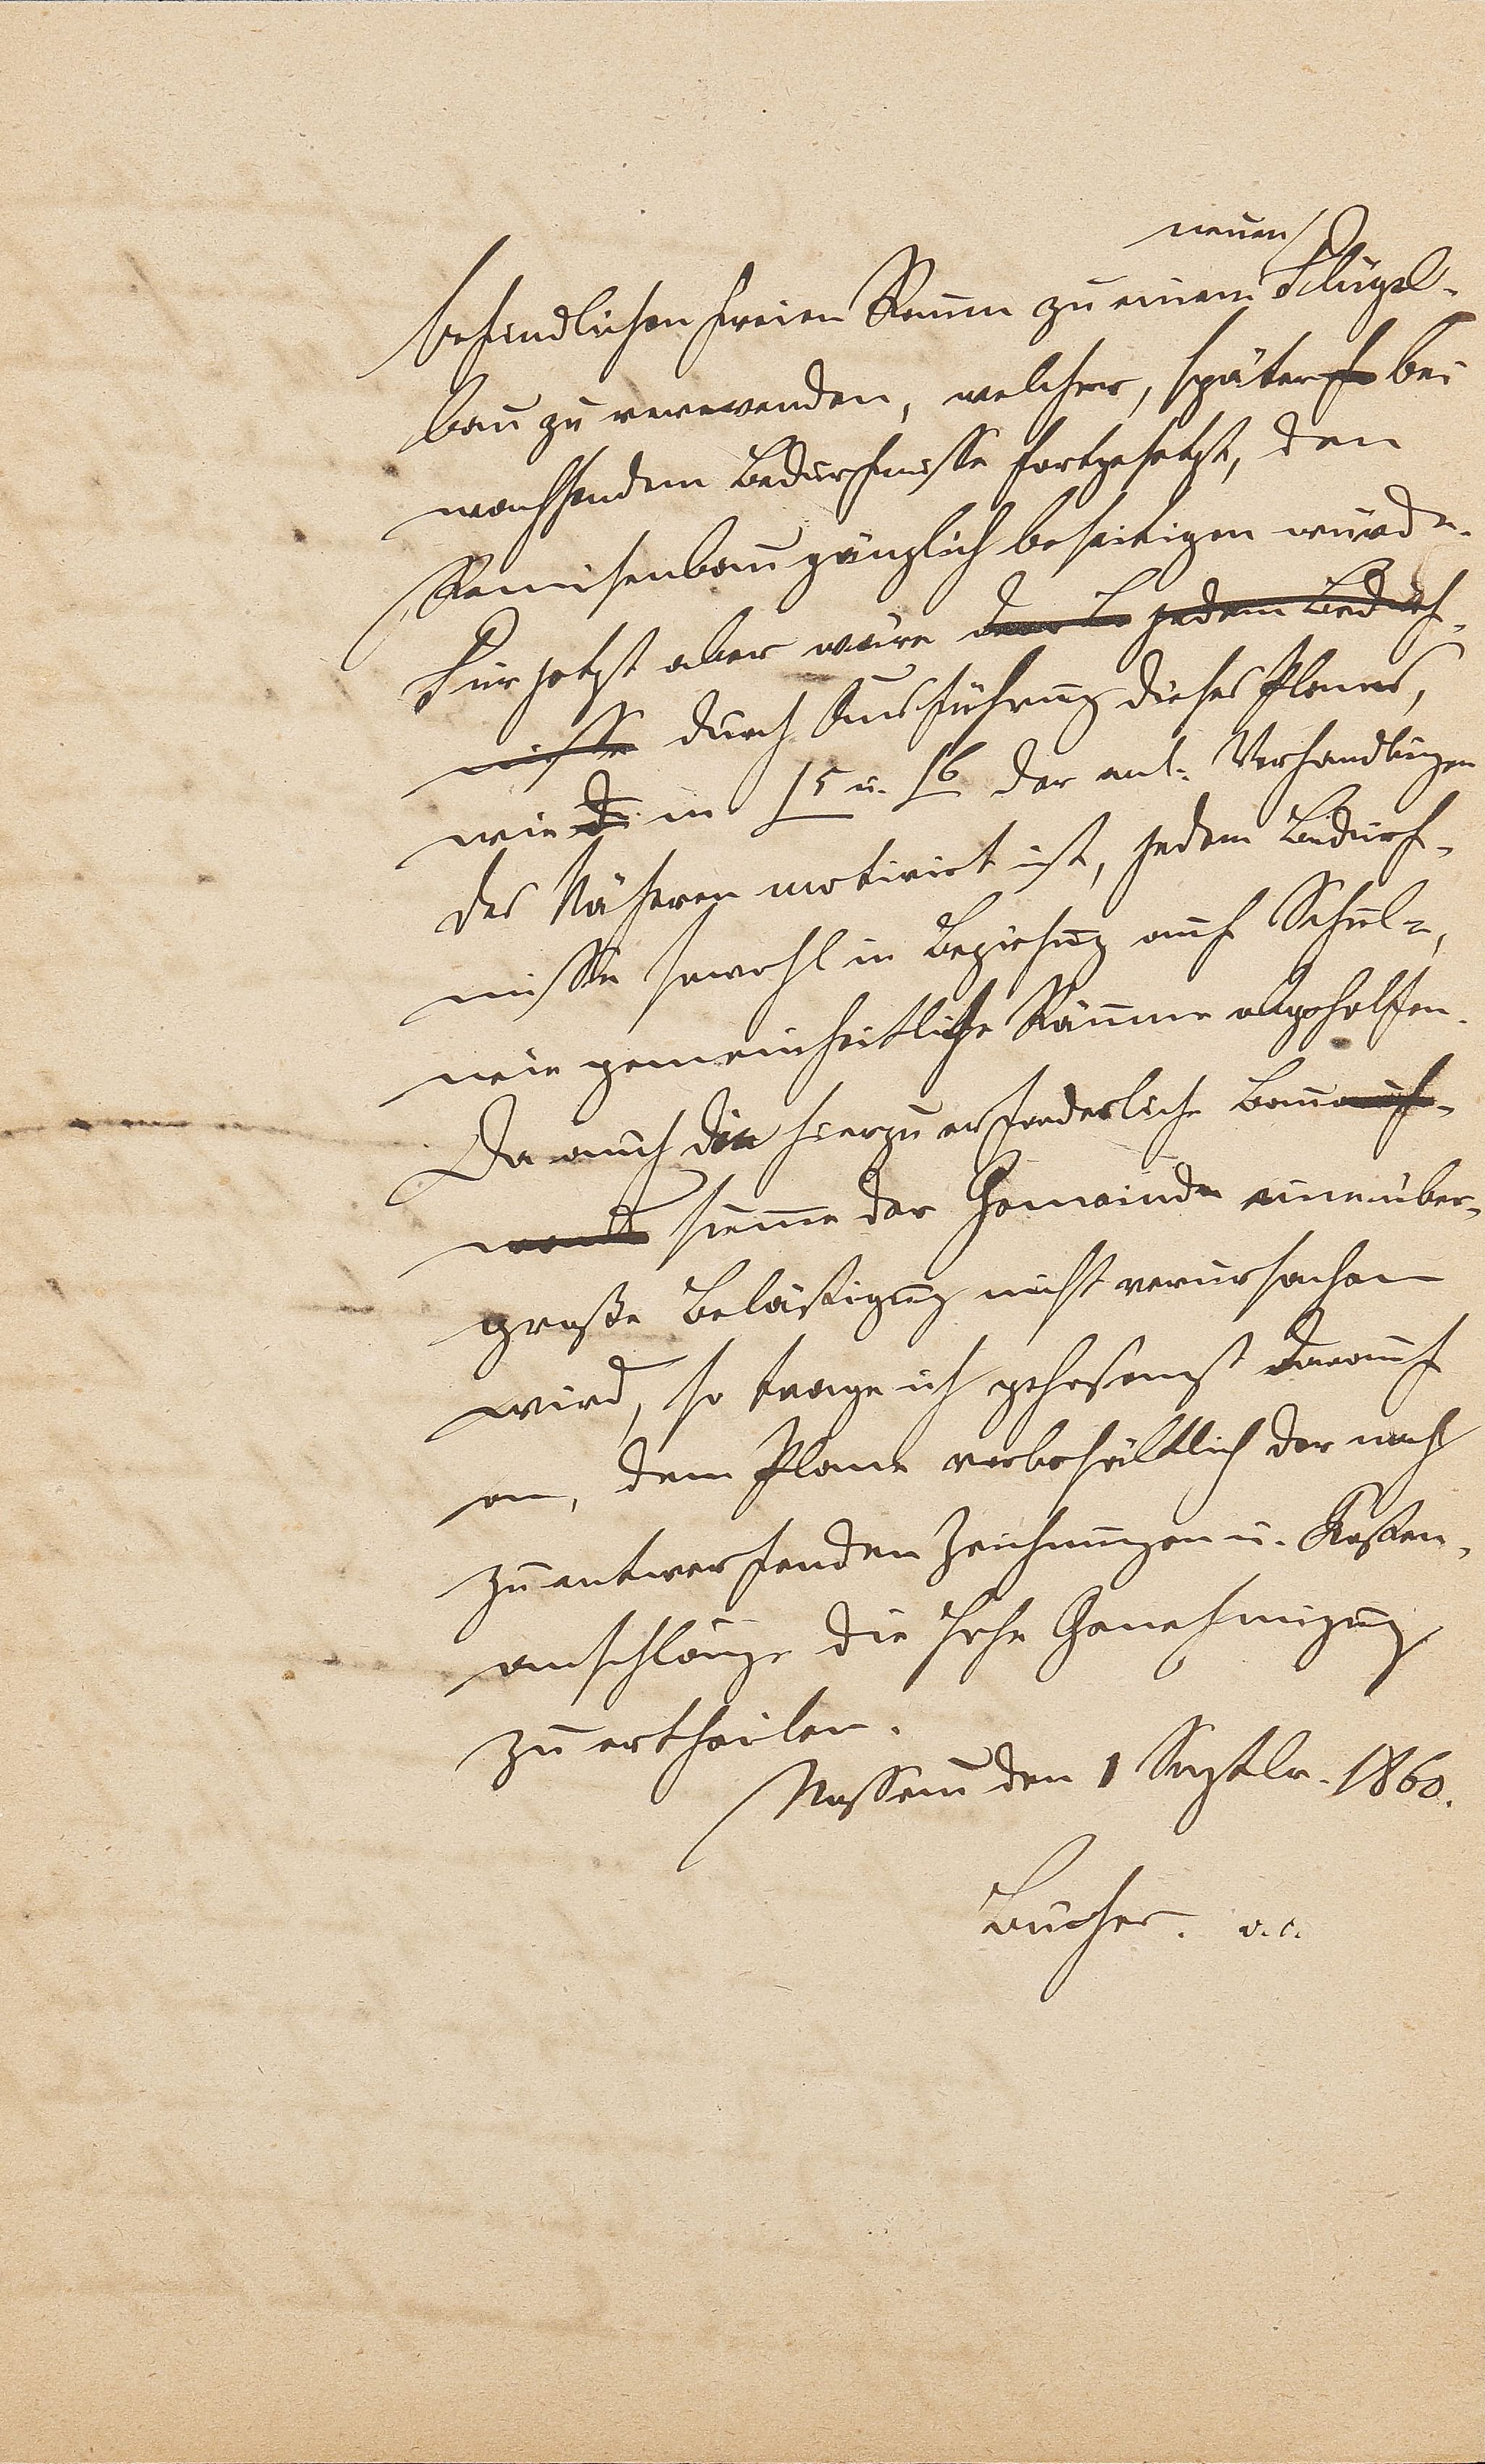 neuen
befindlichen freien Raum zu einem Flügel-
bau zu verwenden, welcher, später bei
wachsendem Bedürfnisse fortgesetzt, den
Remisenbau gänzlich beseitigen würde.
Für jetzt aber wäre dem Be jedem Bedürf-
nisse durch Ausführung dieses Planes,
wie di in §5 u. §6 der anl. Verhandlungen
des Näheren motivirt ist, jedem Bedürf-
nisse sowohl in Beziehung auf Schul-,
wie gemeinheitliche Räume abgeholfen.
Da auch die hierzu erforderliche Bauauf-
wands summe der Gemeinde eine über-
große Belästigung nicht verursachen
wird, so trage ich gehorsamst darauf
an, dem Plane vorbehältlich der noch
zu entwerfenden Zeichnungen u. Kosten-
anschläge die hohe Genehmigung
zu ertheilen.
Nassau den 1 Septbr. 1860.
Bucher.